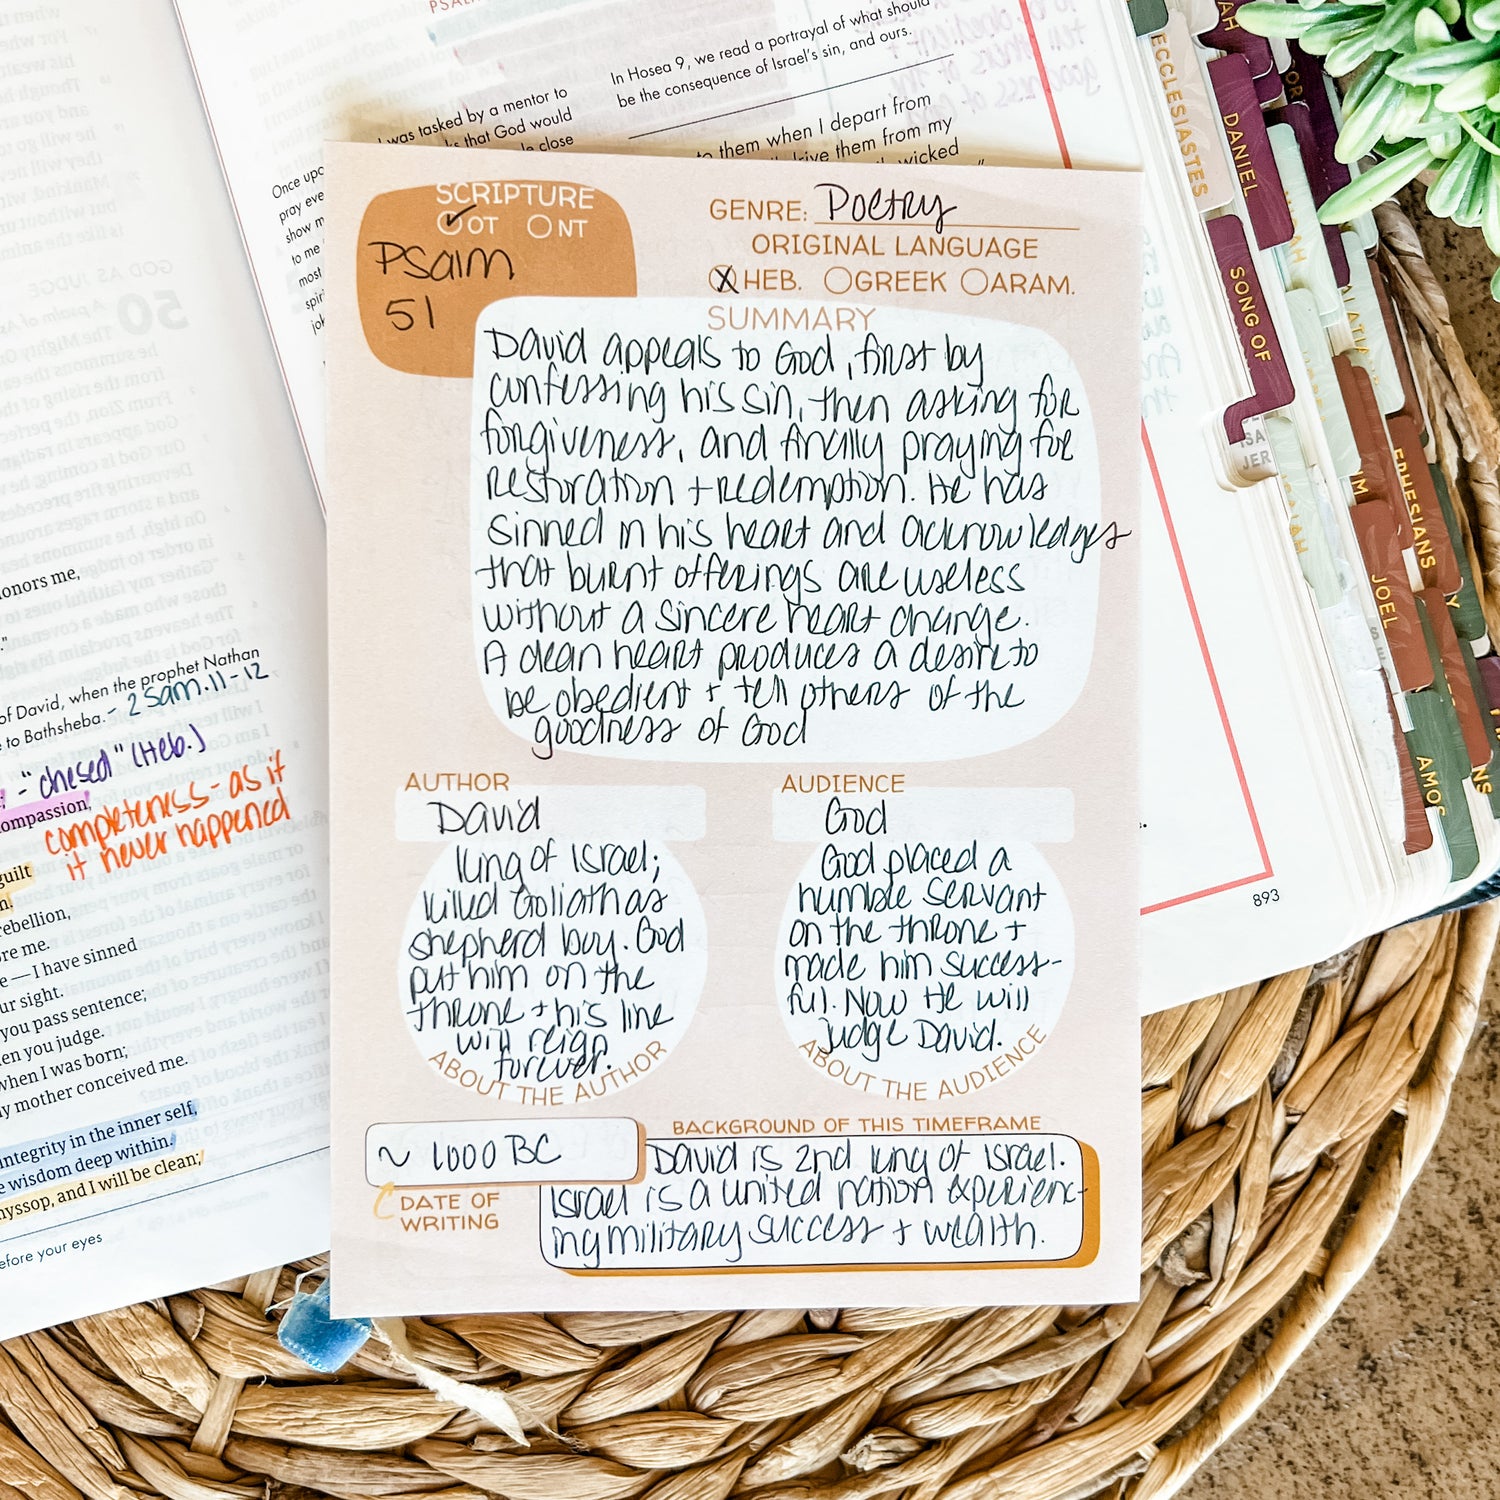 In Hosea 9, we read a portrayal of what should
be the consequence of Israel's sin, and ours.
was tasked by a mentor to
that God would
close
them when I depart from
drive them from my
wicked
Once upo
pray eve
show m
to me
most
spiri
jok
SCRIPTURE
OT NT
Psalm
51
GENRE: Poetry
ORIGINAL LANGUAGE
HEB. GREEK ARAM.
SUMMARY
David appeals to God, first by
confessing his sin, then asking for
forgiveness, and finally praying for
restoration + redemption. He has
sinned in his heart and acknowledges
that burnt offerings are useless
without a sincere heart change.
A clean heart produces a desire to
be obedient + tell others of the
goodness of God
AUTHOR
David
king of Israel;
killed Goliath as
shepherd boy. God
put him on the
throne + his line
will reign
forever.
ABOUT THE AUTHOR
AUDIENCE
God
God placed a
humble servant
on the throne +
made him success-
ful. Now He will
judge David.
ABOUT THE AUDIENCE
~ 1000 BC
DATE OF
WRITING
BACKGROUND OF THIS TIMEFRAME
David is 2nd king of Israel.
Israel is a united nation experienc-
ing military success + wealth.
onors me,
of David, when the prophet Nathan
e to Bathsheba. - 2 Sam. 11-12
- "chesed" (Heb.)
ompassion,
completeness - as if
it never happened
guilt
n.
rebellion,
re me.
e — I have sinned
ur sight.
you pass sentence;
en you judge.
when I was born;
y mother conceived me.
integrity in the inner self,
e wisdom deep within.
hyssop, and I will be clean;
efore your eyes
893
ECCLESIASTES
DANIEL
SONG OF
ISA
JER
ISAIAH
EPHESIANS
JOEL
AMOS